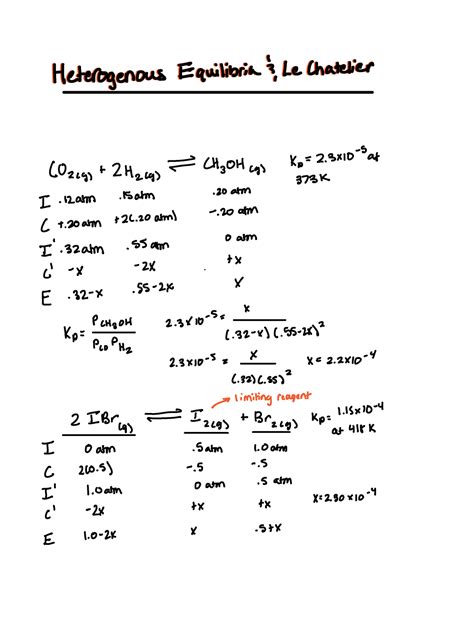 Heterogenous Equilibria & Le Chatelier
CO₂(g) + 2H₂(g) ⇌ CH₃OH (g) Kp = 2.3x10⁻⁵ at
373K
I .12atm .15atm .20 atm
C +.20 atm +2(.20 atm) -.20 atm
I' .32atm .55 atm 0 atm
C' -x -2x +x
E .32-x .55-2x x
Kp = P CH₃OH / P CO P H₂ 2.3x10⁻⁵ = x / (.32-x)(.55-2x)²
2.3x10⁻⁵ = x / (.32)(.55)² x = 2.2x10⁻⁴
→ limiting reagent
2 IBr(g) ⇌ I₂(g) + Br₂(g) Kp = 1.15x10⁻⁴
at 418 K
I 0 atm .5atm 1.0 atm
C 2(0.5) -.5 -.5
I' 1.0 atm 0 atm .5 atm
C' -2x +x +x x = 2.30x10⁻⁴
E 1.0-2x x .5+x